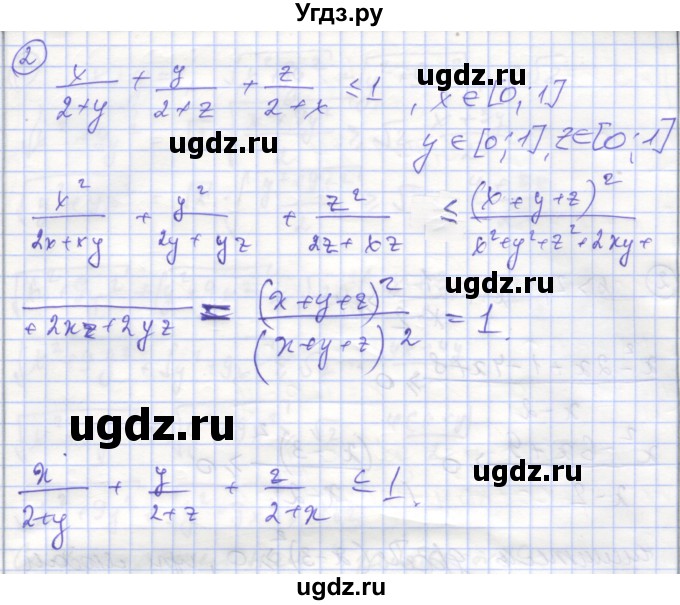 Угдз.ру
② x/(2+y) + y/(2+z) + z/(2+x) ≤ 1, x∈[0;1]
ugdz.ru
y∈[0;1], z∈[0;1]
x²/(2x+xy) + y²/(2y+yz) + z²/(2z+xz) ≤ (x+y+z)²/(x²+y²+z²+2xy+
ugdz.ru ugdz.ru
+2xz+2yz) = (x+y+z)²/(x+y+z)² = 1.
ugdz.ru
ugdz.ru
x/(2+y) + y/(2+z) + z/(2+x) ≤ 1.
ugdz.ru
ugdz.ru